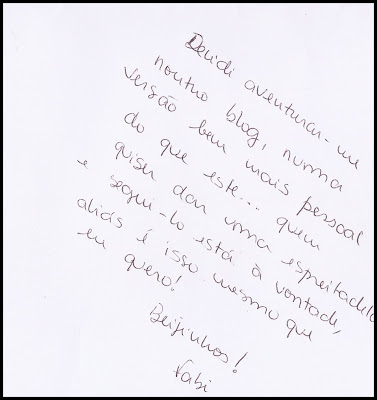 Decidi aventurar-me
noutro blog, numa
versão bem mais pessoal
do que este... quem
quiser dar uma espreitadela
e segui-lo está à vontade,
aliás é isso mesmo que
eu quero!
Beijinhos!
Fabi